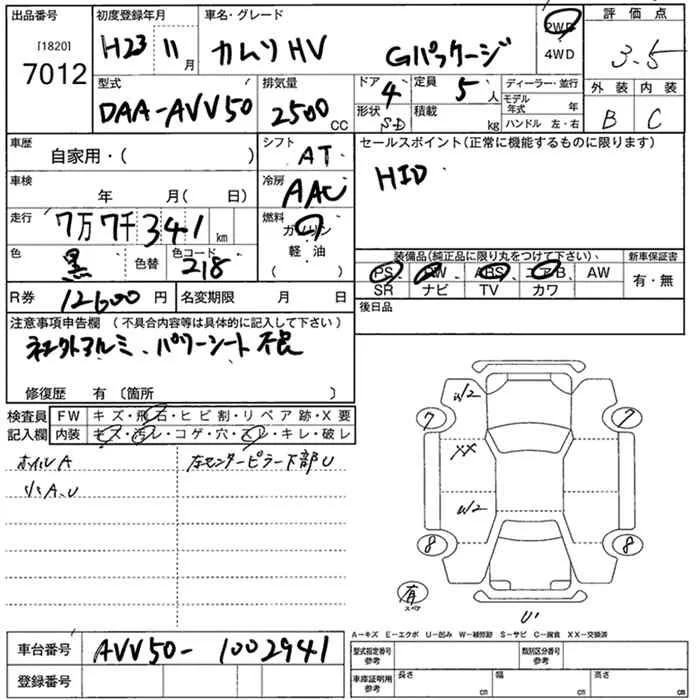 出品番号
[1820]
7012
初度登録年月
H23 11月
車名・グレード
カムリHV Gパッケージ
2WD
4WD
評価点
3.5
外装 内装
B C
型式
DAA-AVV50
排気量
2500 CC
ドア 4
形状 S-D
定員 5人
積載 kg
ディーラー・並行
モデル年式 年
ハンドル 左・右
車歴
自家用・( )
シフト
AT
セールスポイント(正常に機能するものに限ります)
HID
車検
年 月( 日)
冷房
AAC
走行
7万7千341km
燃料
ガソリン
軽油
( )
色
黒
色替
色コード
218
装備品(純正品に限り丸をつけて下さい)、
新車保証書
PS PW ABS エアB AW
SR ナビ TV カワ
有・無
R券 12600円
名変期限 月 日
後日品
注意事項申告欄 (不具合内容等は具体的に記入して下さい)
社外アルミ、パワーシート不良
修復歴 有〔箇所 〕
検査員
記入欄
FW キズ・飛石・ヒビ割・リペア跡・X要
内装 キズ・汚レ・コゲ・穴・スレ・キレ・破レ
ホイルA
小A.U
左センターピラー下部U
W2
7
7
XX
W2
8
8
有
スペア
U'
A－キズ E－エクボ U－凹み W－補修跡 S－サビ C－腐食 XX－交換済
車台番号 AVV50-1002941
登録番号
型式指定番号
参考
類別区分番号
参考
車庫証明用
参考
長さ cm
幅 cm
高さ cm